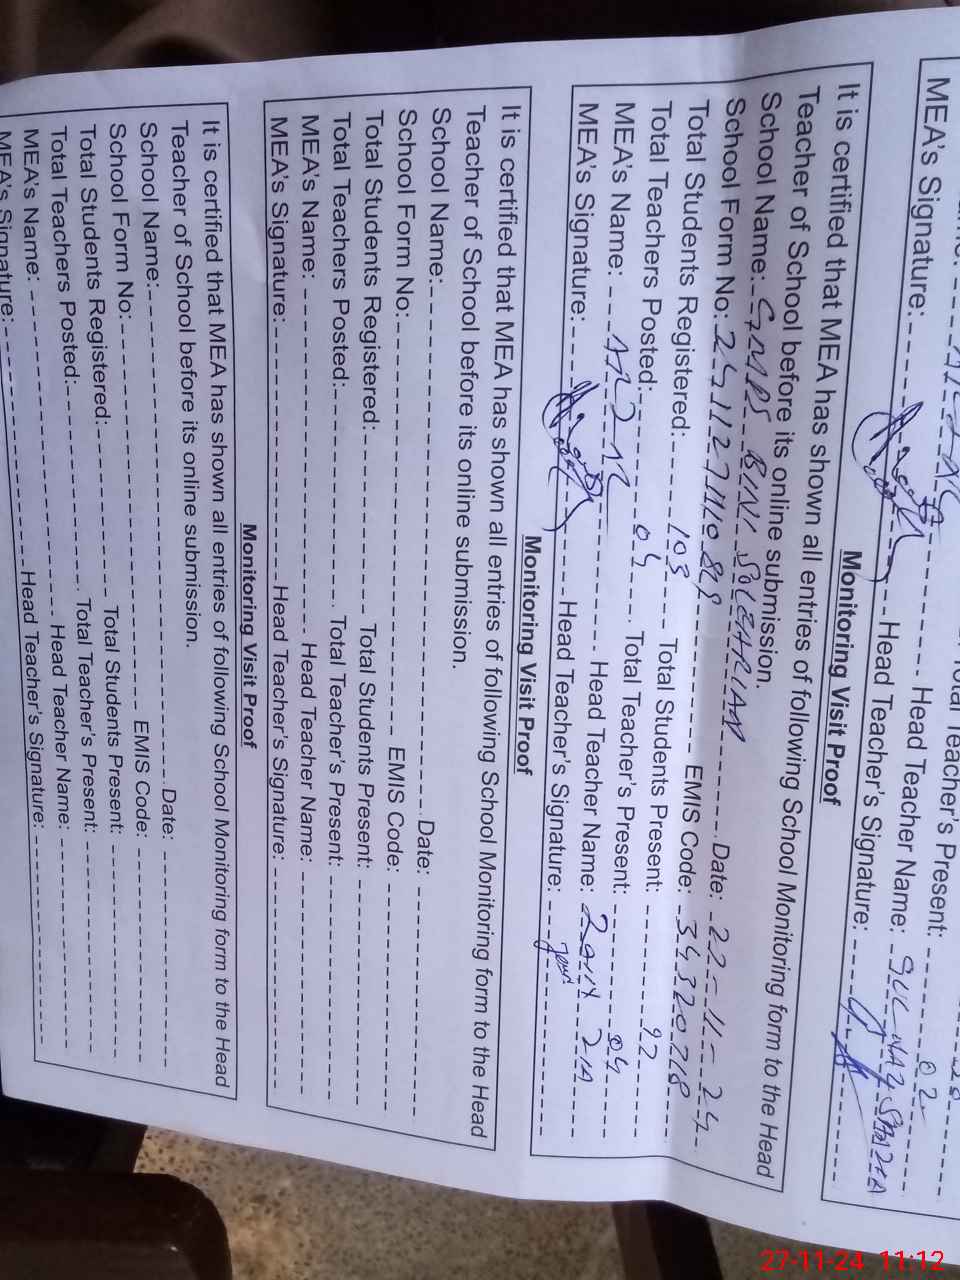 Total Teacher's Present: 02
Head Teacher Name:
MEA's Signature: Head Teacher's Signature:
Monitoring Visit Proof
It is certified that MEA has shown all entries of following School Monitoring form to the Head
Teacher of School before its online submission.
School Name: GMPS BINI Date: 22-11-24
School Form No: EMIS Code: 34320718
Total Students Registered: 103 Total Students Present: 92
Total Teachers Posted: 04 Total Teacher's Present: 04
MEA's Name: Head Teacher Name:
MEA's Signature: Head Teacher's Signature:
Monitoring Visit Proof
It is certified that MEA has shown all entries of following School Monitoring form to the Head
Teacher of School before its online submission.
School Name: Date:
School Form No: EMIS Code:
Total Students Registered: Total Students Present:
Total Teachers Posted: Total Teacher's Present:
MEA's Name: Head Teacher Name:
MEA's Signature: Head Teacher's Signature:
Monitoring Visit Proof
It is certified that MEA has shown all entries of following School Monitoring form to the Head
Teacher of School before its online submission.
School Name: Date:
School Form No: EMIS Code:
Total Students Registered: Total Students Present:
Total Teachers Posted: Total Teacher's Present:
MEA's Name: Head Teacher Name:
MEA's Signature: Head Teacher's Signature:
27-11-24 11:12